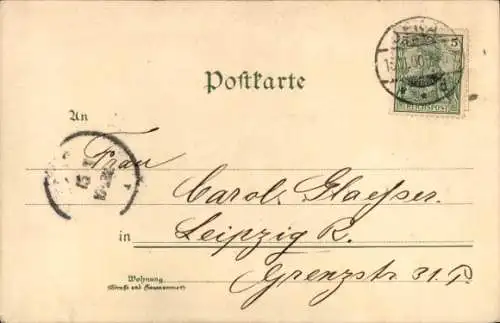 5
REICHSPOST
Postkarte
An
Frau
Carol. Glaeser.
in Leipzig R.
Wohnung
(Straße und Hausnummer)
Grenzstr 31. P.